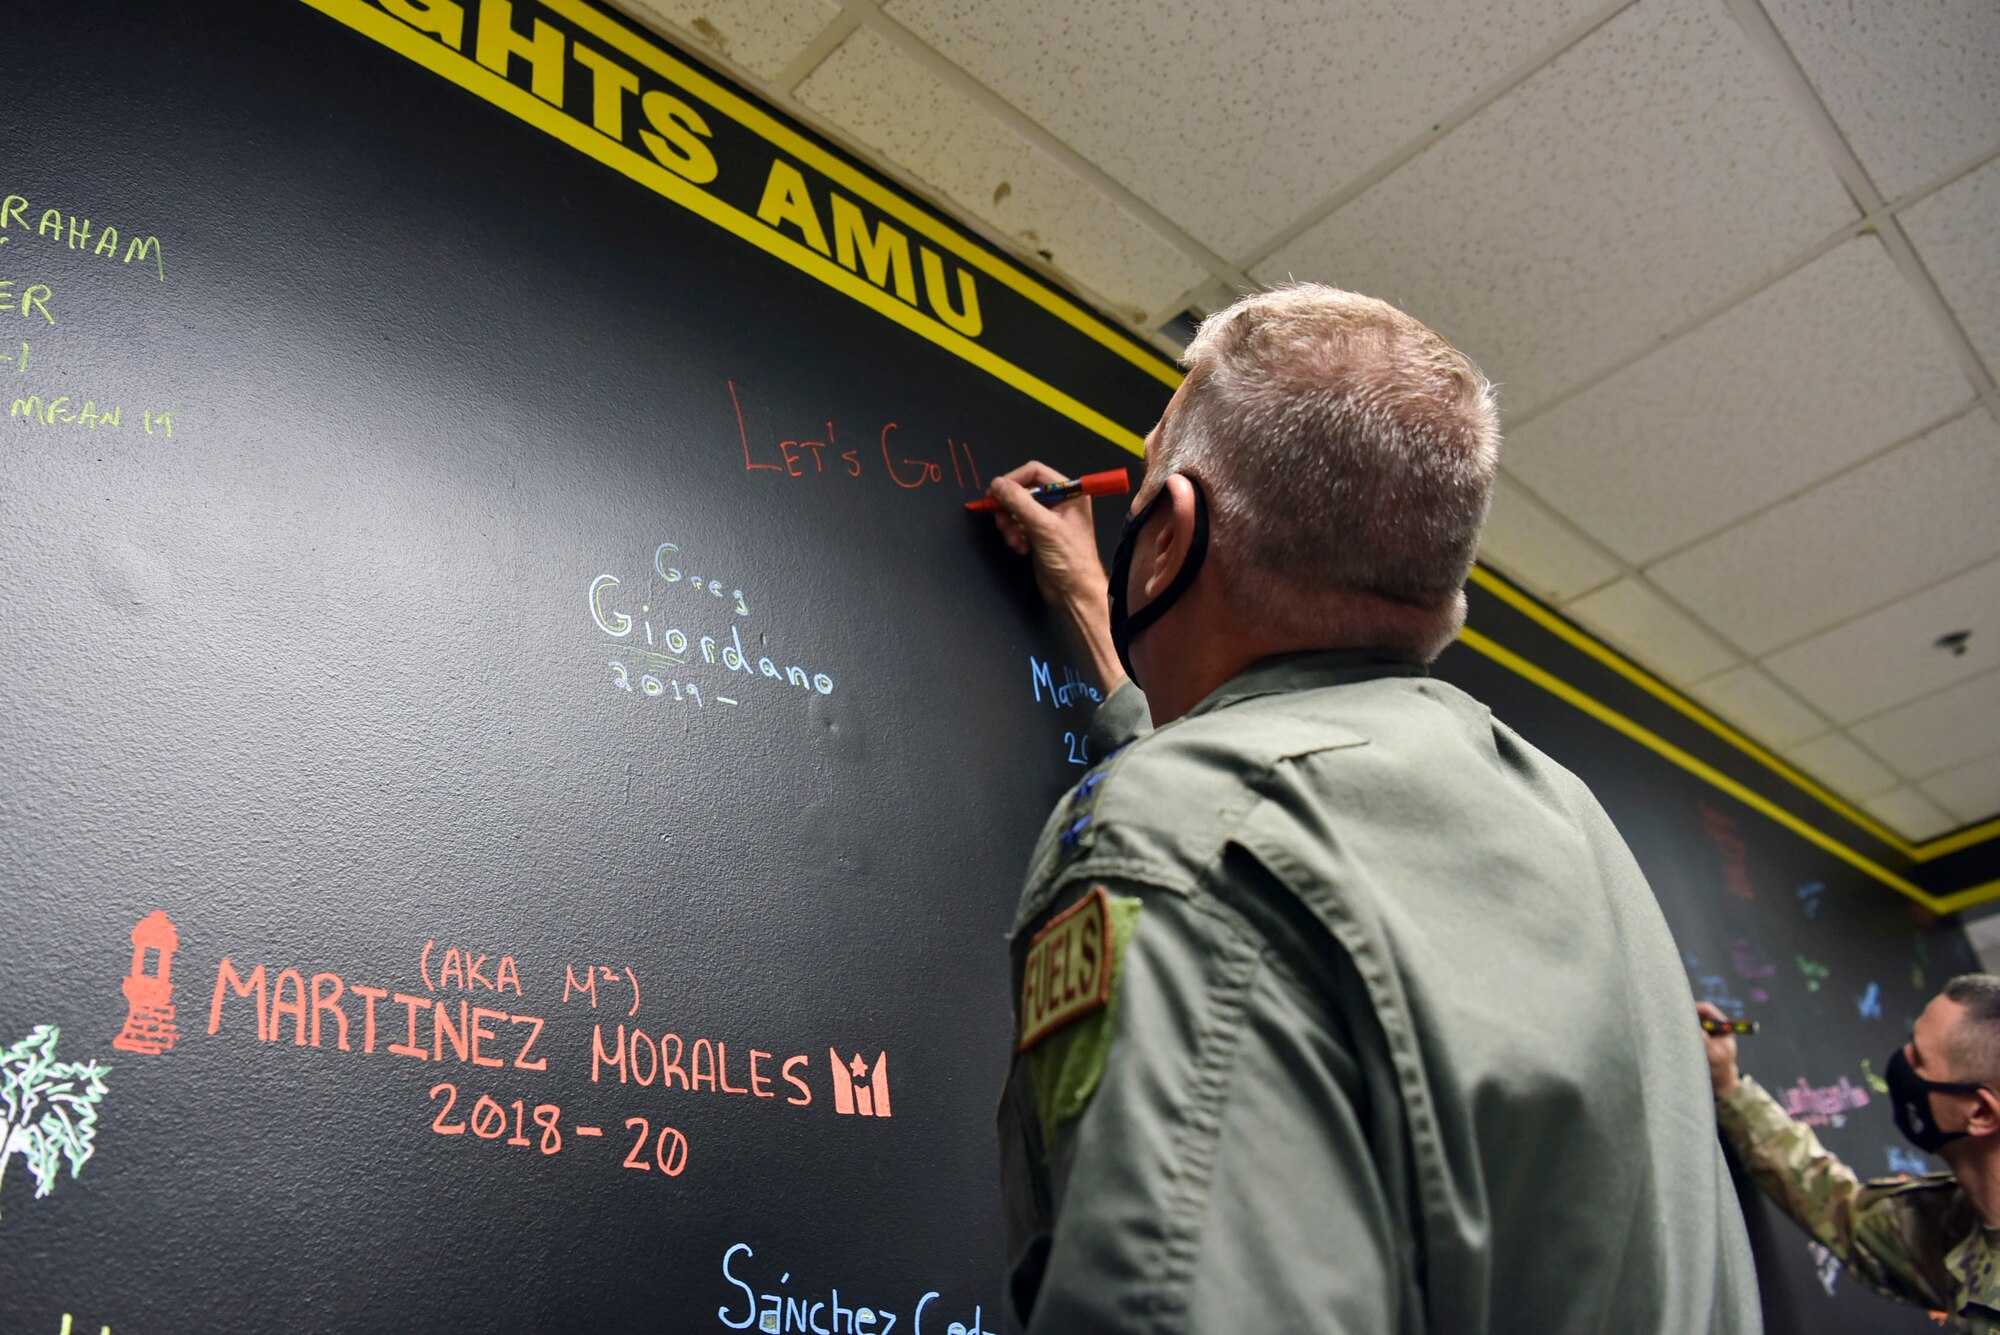 GHTS AMU
RAHAM
ER
-1
MEAN IT
LET'S Go!!
Greg
Giordano
2019-
Matthe
20
FUELS
(AKA M²)
MARTINEZ MORALES
2018-20
Sánchez